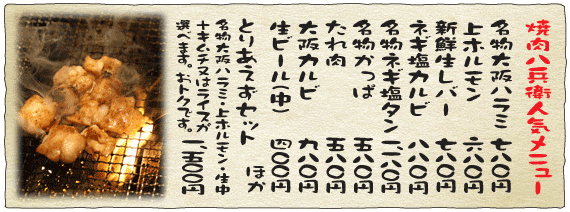 焼肉八兵衛人気メニュー
名物大阪ハラミ 七八〇円
上ホルモン 六八〇円
新鮮生レバー 七八〇円
ネギ塩カルビ 八八〇円
名物ネギ塩タン 一、二八〇円
名物かっぱ 五八〇円
たれ肉 五八〇円
大阪カルビ 九八〇円
生ビール(中) 四〇〇円
ほか
とりあえずセット
名物大阪ハラミ・上ホルモン・生中
+キムチ又はライスが
選べます。おトクです。 一、五〇〇円